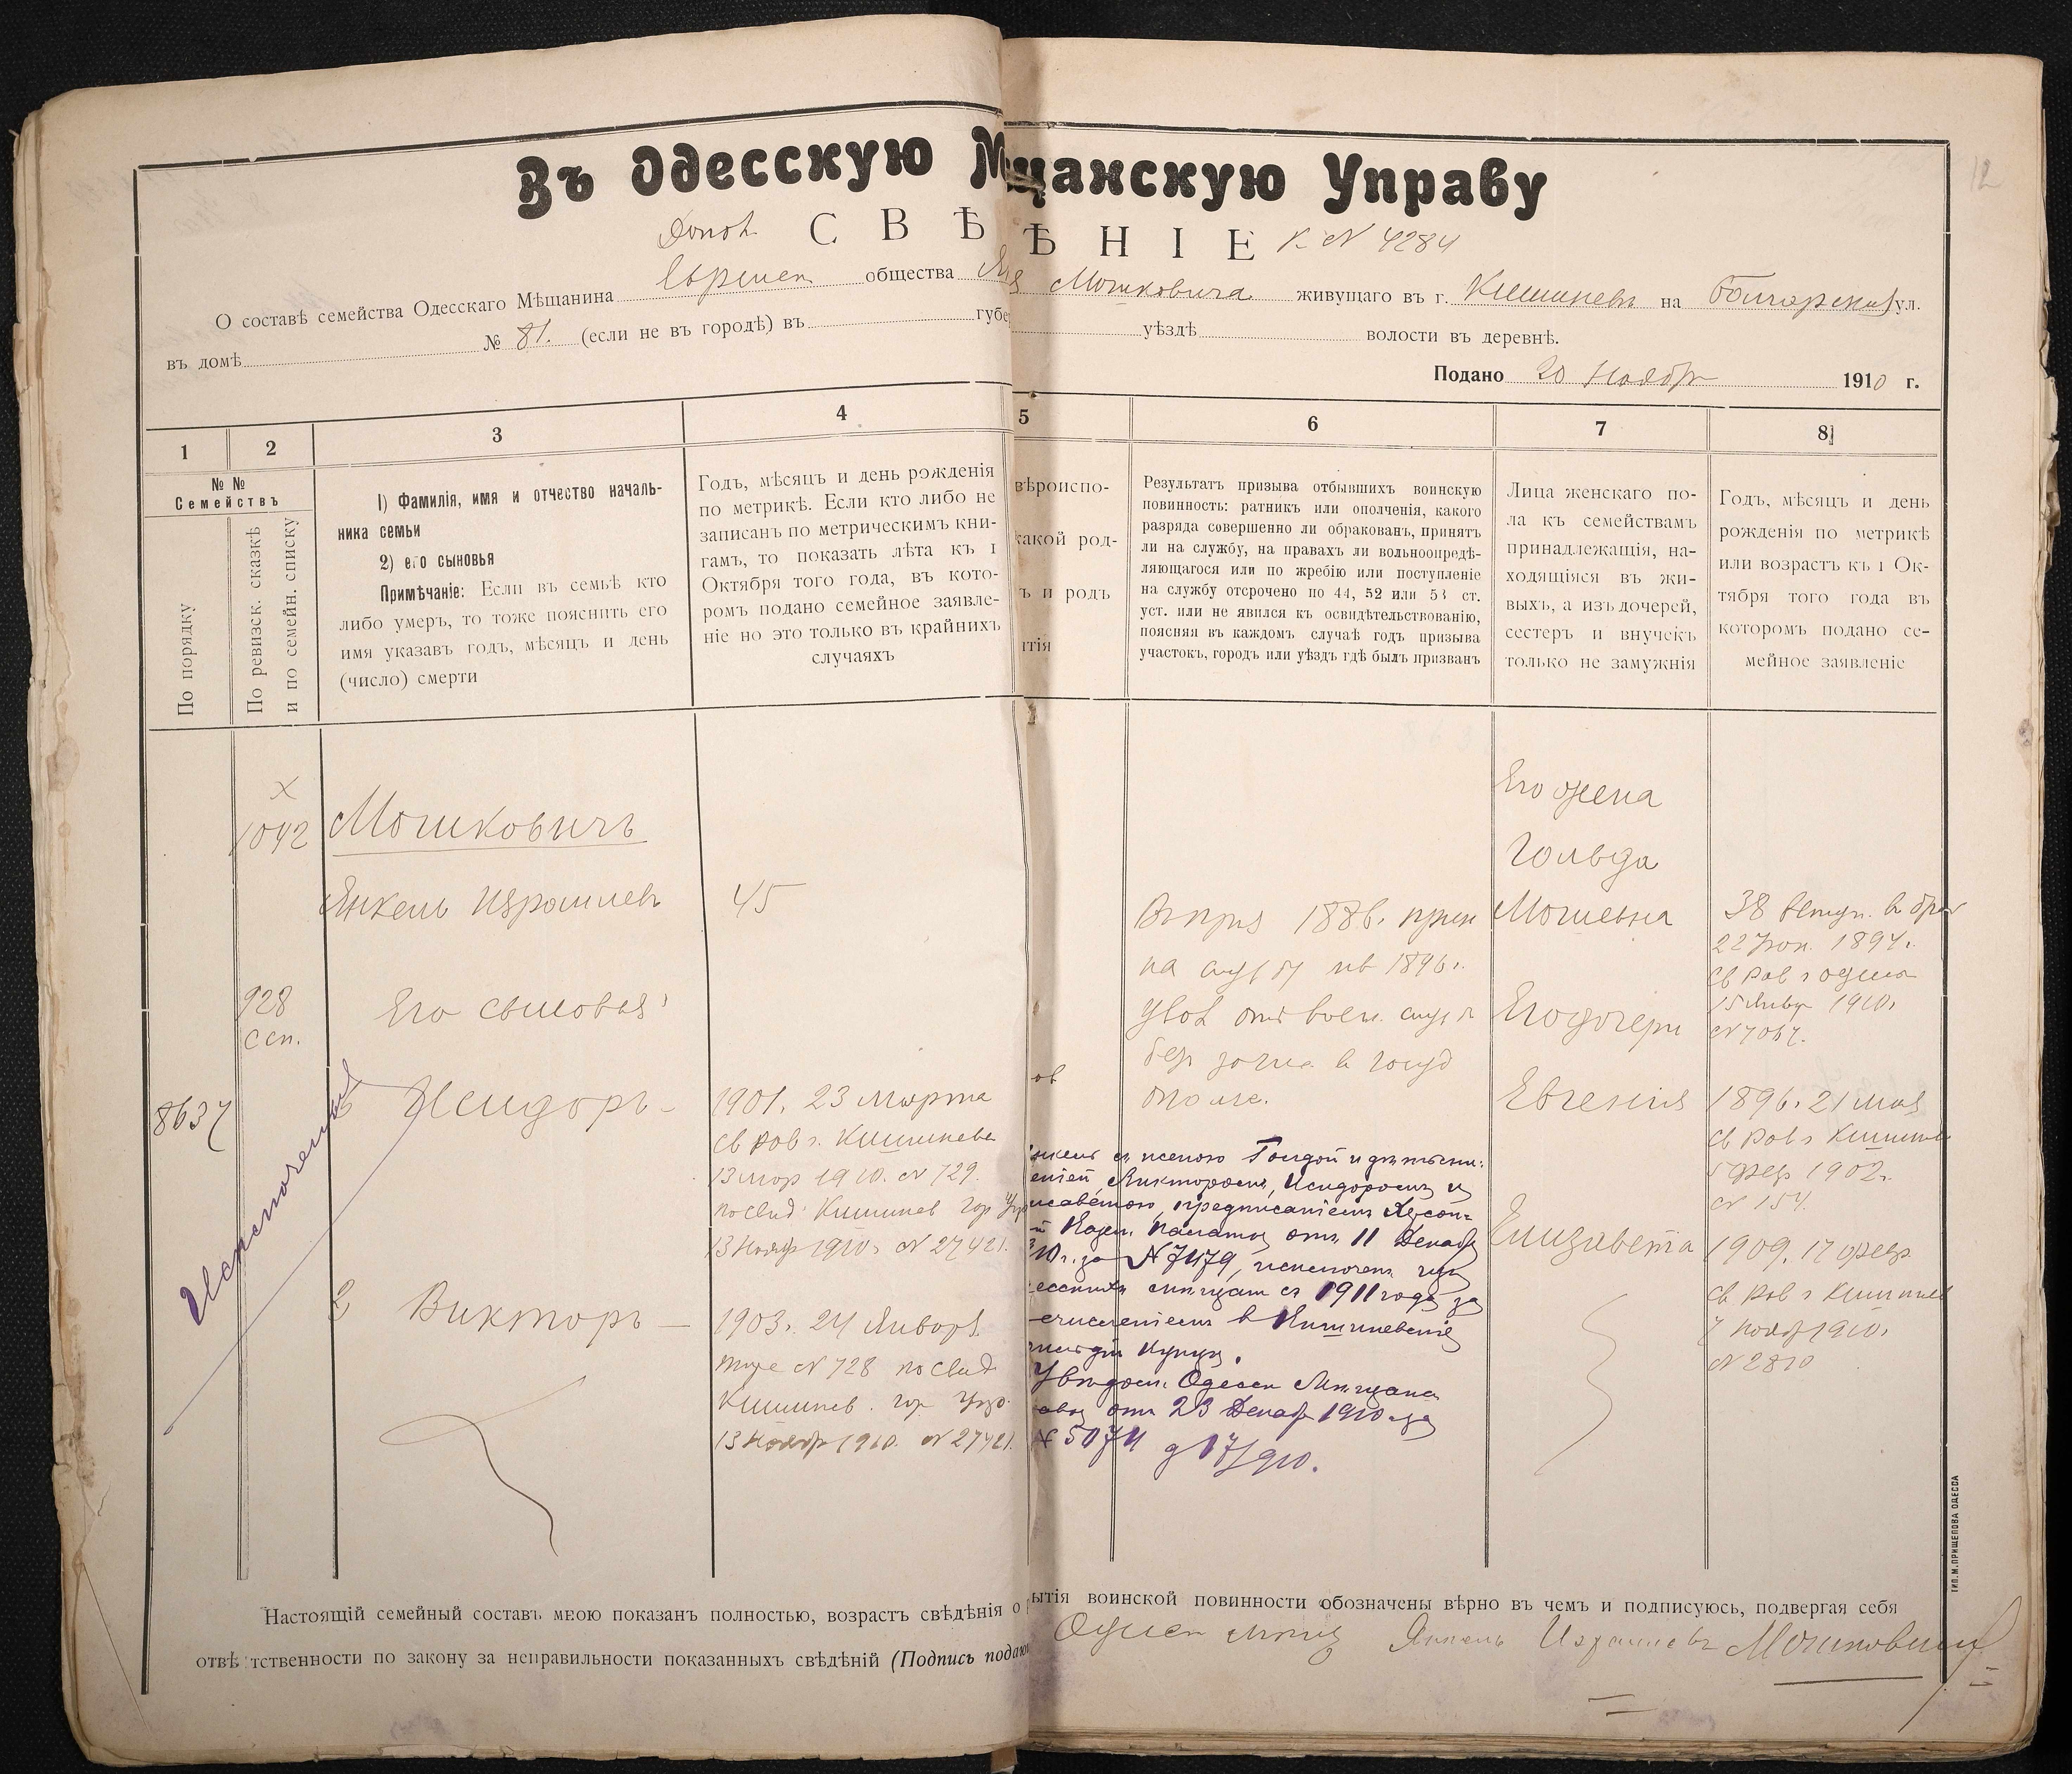 12
Въ Одесскую Мѣщанскую Управу
Допол. СВѢДѢНІЕ К № 4284
О составѣ семейства Одесскаго Мѣщанина Еврейск общества Янкеля Мошковича живущаго въ г. Кишиневѣ на Болгарской ул.
въ домѣ № 81. (если не въ городѣ) въ губер уѣздѣ волости въ деревнѣ.
Подано 20 Ноября 1910 г.
1 2 3 4 5 6 7 8
№№
Семействъ
По порядку
По ревизск. сказкѣ
и по семейн. списку
1) Фамилія, имя и отчество началь-
ника семьи
2) его сыновья
Примѣчаніе: Если въ семьѣ кто
либо умеръ, то тоже пояснить его
имя указавъ годъ, мѣсяцъ и день
(число) смерти
Годъ, мѣсяцъ и день рожденія
по метрикѣ. Если кто либо не
записанъ по метрическимъ кни-
гамъ, то показать лѣта къ 1
Октября того года, въ кото-
ромъ подано семейное заявле-
ніе но это только въ крайнихъ
случаяхъ
вѣроиспо-
какой род-
ъ и родъ
ятія
Результатъ призыва отбывшихъ воинскую
повинность: ратникъ или ополченія, какого
разряда совершенно ли обракованъ, принятъ
ли на службу, на правахъ ли вольноопредѣ-
ляющагося или по жребію или поступленіе
на службу отсрочено по 44, 52 или 53 ст.
уст. или не явился къ освидѣтельствованію,
поясняя въ каждомъ случаѣ годъ призыва
участокъ, городъ или уѣздъ гдѣ былъ призванъ
Лица женскаго по-
ла къ семействамъ
принадлежащія, на-
ходящіяся въ жи-
выхъ, а изъ дочерей,
сестеръ и внучекъ
только не замужнія
Годъ, мѣсяцъ и день
рожденія по метрикѣ
или возрастъ къ 1 Ок-
тября того года въ
которомъ подано се-
мейное заявленіе
х
1042
Мошковичъ
Янкель Израилевъ
45
928
ссп.
Его сыновья:
8637
Исключены
1 Исидоръ
1901. 23 Марта
св рав г. Кишинева
13 мар 1910. № 729.
по свид. Кишинев гор Упр
13 Ноябр 1910г № 27421.
2 Викторъ
1903. 24 Января
тоже № 728 по свид
Кишинев. гор Упр.
13 Ноября 1910. № 27421.
ов
В приз 1886. прин
на служ и в 1896г.
увол от воен. служ
без зачис. в госуд
ополч.
нкель съ женою Гольдой и дѣтьми:
еніей, Викторомъ, Исидоромъ и
исаветою, предписаніемъ Херсон-
й Казен. Палаты отъ 11 Декабр
10 г. за № 7479, исключенъ изъ
есскихъ мѣщан съ 1911 года за
числениемъ в Кишиневскіе
гильдіи Купцы.
Увѣдом. Одесск Мѣщанск
авы отъ 23 Декабр 1910 г за
№ 5074 д 17/910.
Его жена
Гольда
Мошевна
38 вступ. в брак
22 1894г.
св рав г Одессы
15 Январ 1910г
№ 7067.
Его дочери
Евгенія
1896. 21 мая
св рав г Кишинев
5 Февр 1902г.
№ 154.
Елизавета
1909. 17 Февр
св рав г Кишинев
7 Ноября 1910г
№ 2810
Настоящій семейный составъ мною показанъ полностью, возрастъ свѣдѣнія о бытія воинской повинности обозначены вѣрно въ чемъ и подписуюсь, подвергая себя
отвѣтственности по закону за неправильности показанныхъ свѣдѣній (Подпись подаю Одесск мѣщ Янкель Израилевъ Мошковичъ
ТИП. М. ПРИЩЕПОВА ОДЕССА